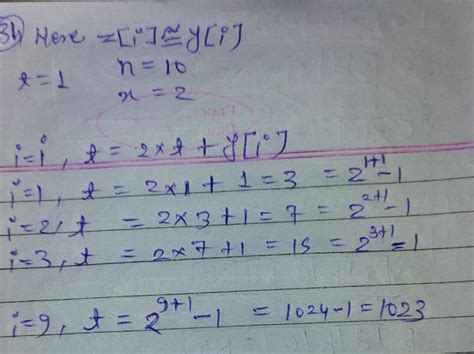 34) Here z[i] ≅ y[i]
t=1 n=10
x=2
i=i, t = 2×t + y[i]
i=1, t = 2×1+1=3 = 2^{1+1}-1
i=2, t = 2×3+1=7 = 2^{2+1}-1
i=3, t = 2×7+1=15 = 2^{3+1}=1
i=9, t = 2^{9+1}-1 = 1024-1=1023